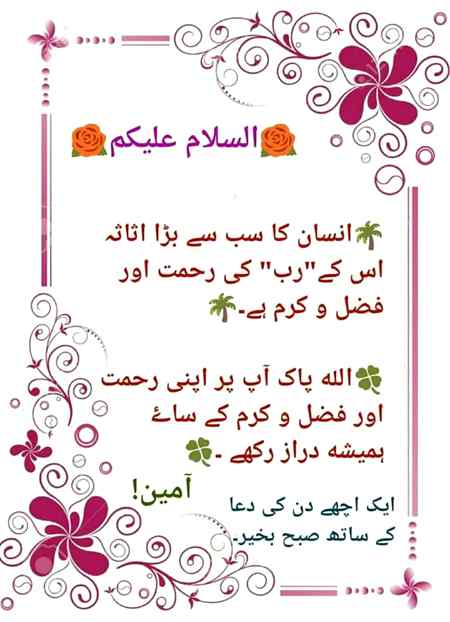 السلام علیکم
انسان کا سب سے بڑا اثاثہ
اس کے"رب" کی رحمت اور
فضل و کرم ہے۔
اللہ پاک آپ پر اپنی رحمت
اور فضل و کرم کے سائے
ہمیشہ دراز رکھے ۔
آمین!
ایک اچھے دن کی دعا
کے ساتھ صبح بخیر۔